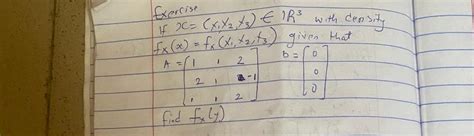 Exercise
If x = (x₁, x₂, x₃) ∈ ℝ³ with density
fx(x) = fx(x₁, x₂, x₃) given that
A = [1 1 2 B = [0
2 1 -1 0
1 1 2] 0]
find fx(y)